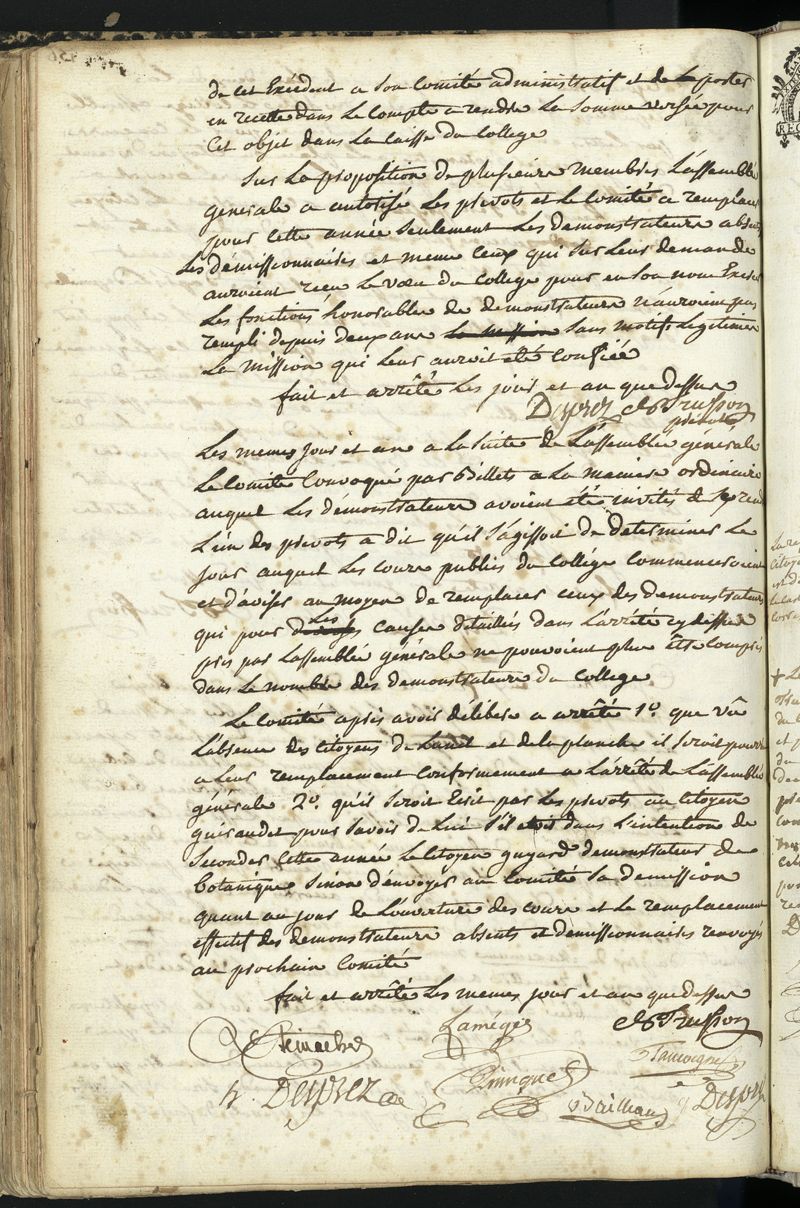 de cet Excédent a Son Comité administratif et de le porter
en recette dans Le Compte a rendre La Somme versée pour
Cet objet dans La Caisse du College
Sur La proposition de plusieurs membres L'assemblée
generale a autorisé Les prevots et Le Comité a remplacer
pour Cette année Seulement Les demonstrateurs absents
Les démissionnaires et meme Ceux qui Sur Leur demande
auroient recu Le vœu du College pour en Son nom Exercer
Les fonctions honorables de demonstrateurs n'auroient pas
rempli depuis deux ans La mission Sans motifs Legitimes
La mission qui Leur auroit été Confiée
fait et arrêté Les jour et an que dessus
Deyrez
prévot
Les memes Jour et an a La Suite de L'assemblée generale
Le Comité Convoqué par Billets a La maniere ordinaire
auquel Les démonstrateurs avoient été invités de Se rend
L'un des prevots a dit qu'il S'agissoit de determiner Le
jour auquel Les Cours publics du Collége Commenceroient
et d'aviser au moyen de remplacer Ceux des demonstrateurs
qui pour Les Causes détaillés dans L'arrêté cy dessus
pris par L'assemblée générale ne pouvoient plus être Compris
dans Le nombre des demonstrateurs du College
Le Comité après avoir déliberé a arrêté 1°. que vû
L'absence des Citoyens de Lunel et de la planche il Seroit pourvu
a Leur remplacement Conformement a L'arrêté de L'assemblée
générale 2°. qu'il Seroit Ecrit par Les prevots au Citoyen
guéraudet pour Savoir de Lui S'il etoit dans L'intention de
Seconder Cette année Le Citoyen guyard demonstrateur de
Botanique Sinon d'envoyer au Comité Sa demission
quant au jour de L'ouverture des Cours et Le remplacement
effectif des demonstrateurs absents et demissionnaires renvoyés
au prochain Comité
fait et arrêté Les memes jour et an que dessus
Lamégie
Trusson
Deyrez
Bailleau